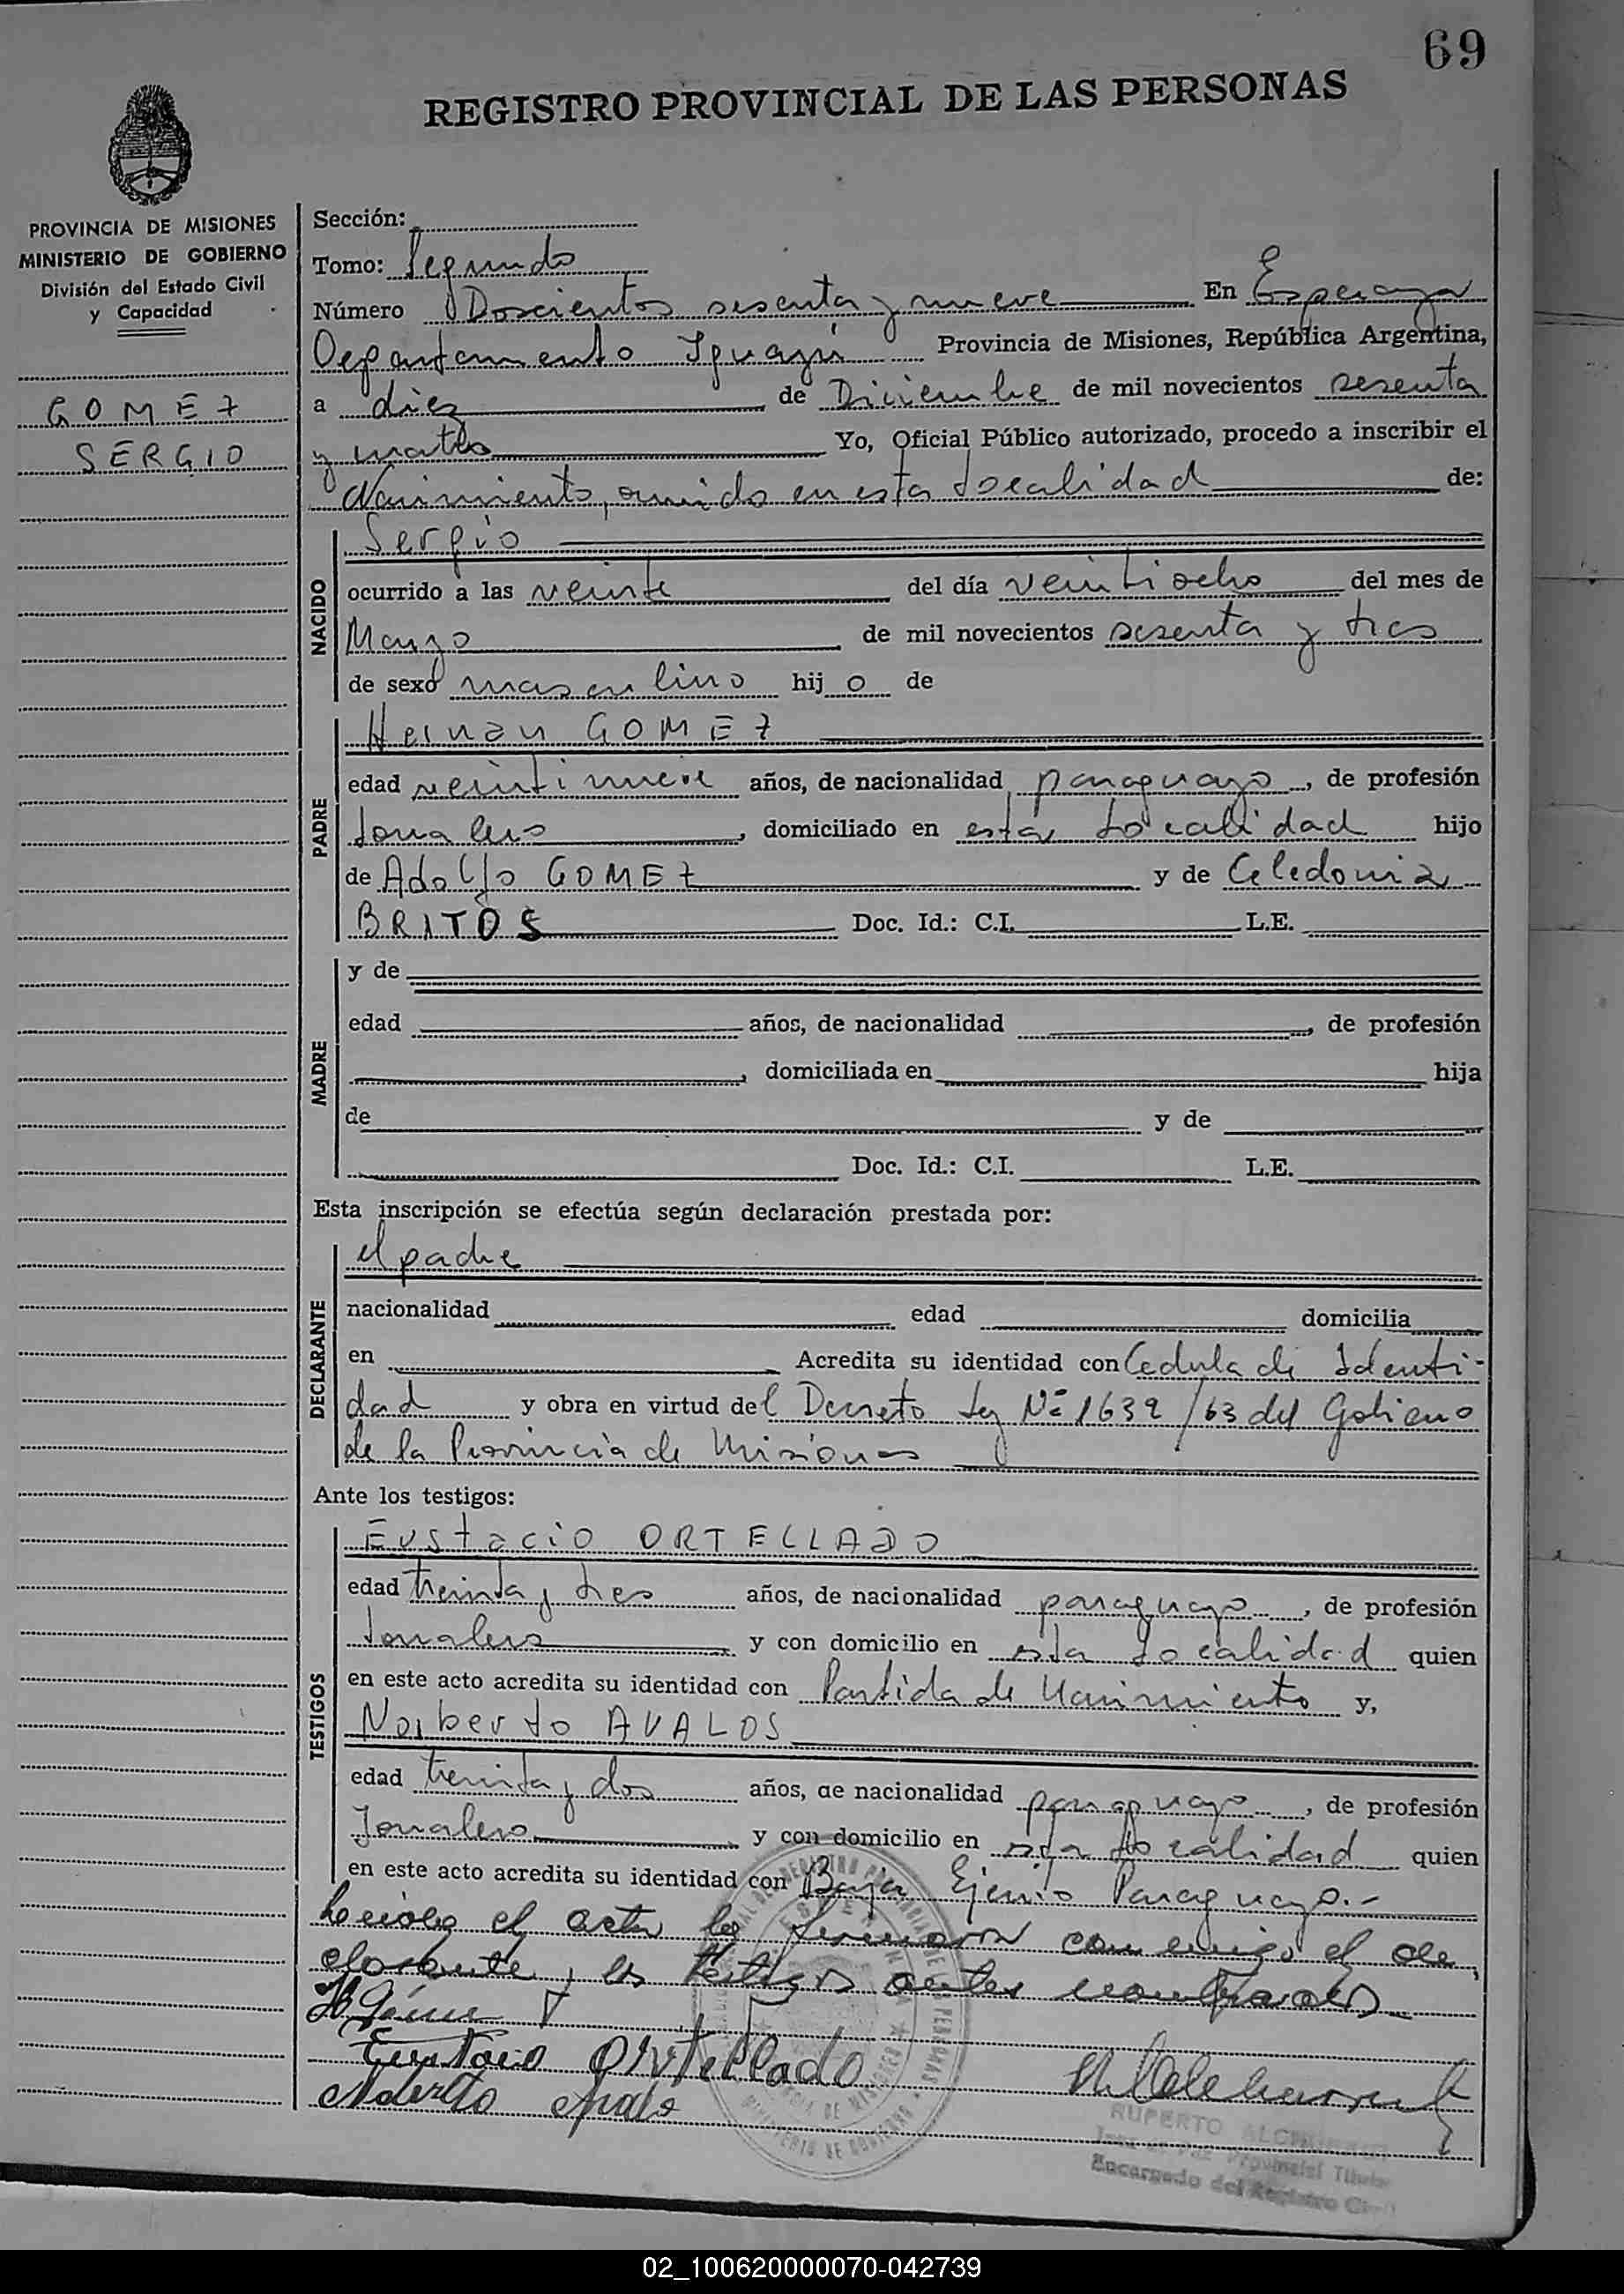 69
REGISTRO PROVINCIAL DE LAS PERSONAS
PROVINCIA DE MISIONES
MINISTERIO DE GOBIERNO
División del Estado Civil
y Capacidad
GOMEZ
SERGIO
Sección:
Tomo: Segundo
Número Doscientos sesenta y nueve En Esperanza
Departamento Iguazú Provincia de Misiones, República Argentina,
a diez de Diciembre de mil novecientos sesenta
y cuatro Yo, Oficial Público autorizado, procedo a inscribir el
Nacimiento, ocurrido en esta Localidad de:
NACIDO
Sergio
ocurrido a las veinte del día veintiocho del mes de
Marzo de mil novecientos sesenta y tres
de sexo masculino hijo de
PADRE
Hernan GOMEZ
edad veintinueve años, de nacionalidad paraguayo, de profesión
Jornalero, domiciliado en esta Localidad hijo
de Adolfo GOMEZ y de Celedonia
BRITOS Doc. Id.: C.I. L.E.
MADRE
y de
edad años, de nacionalidad , de profesión
, domiciliada en hija
de y de
Doc. Id.: C.I. L.E.
Esta inscripción se efectúa según declaración prestada por:
DECLARANTE
el padre
nacionalidad edad domicilia
en Acredita su identidad con Cedula de Identi-
dad y obra en virtud del Decreto Ley Nº 1639/63 del Gobierno
de la Provincia de Misiones
Ante los testigos:
TESTIGOS
Eustacio ORTELLADO
edad treinta y tres años, de nacionalidad paraguayo, de profesión
Jornalero y con domicilio en esta Localidad quien
en este acto acredita su identidad con Partida de Nacimiento y,
Norberto AVALOS
edad treinta y dos años, de nacionalidad paraguayo, de profesión
Jornalero y con domicilio en esta Localidad quien
en este acto acredita su identidad con Baja Ejercito Paraguayo.-
Leida el acta la firmaron conmigo el de
clarante y los testigos antes nombrados
H Gómez
Eustacio Ortellado
Norberto Avalo
RUPERTO
Juez de Paz Provincial Titular
Encargado del Registro Civil
02_100620000070-042739